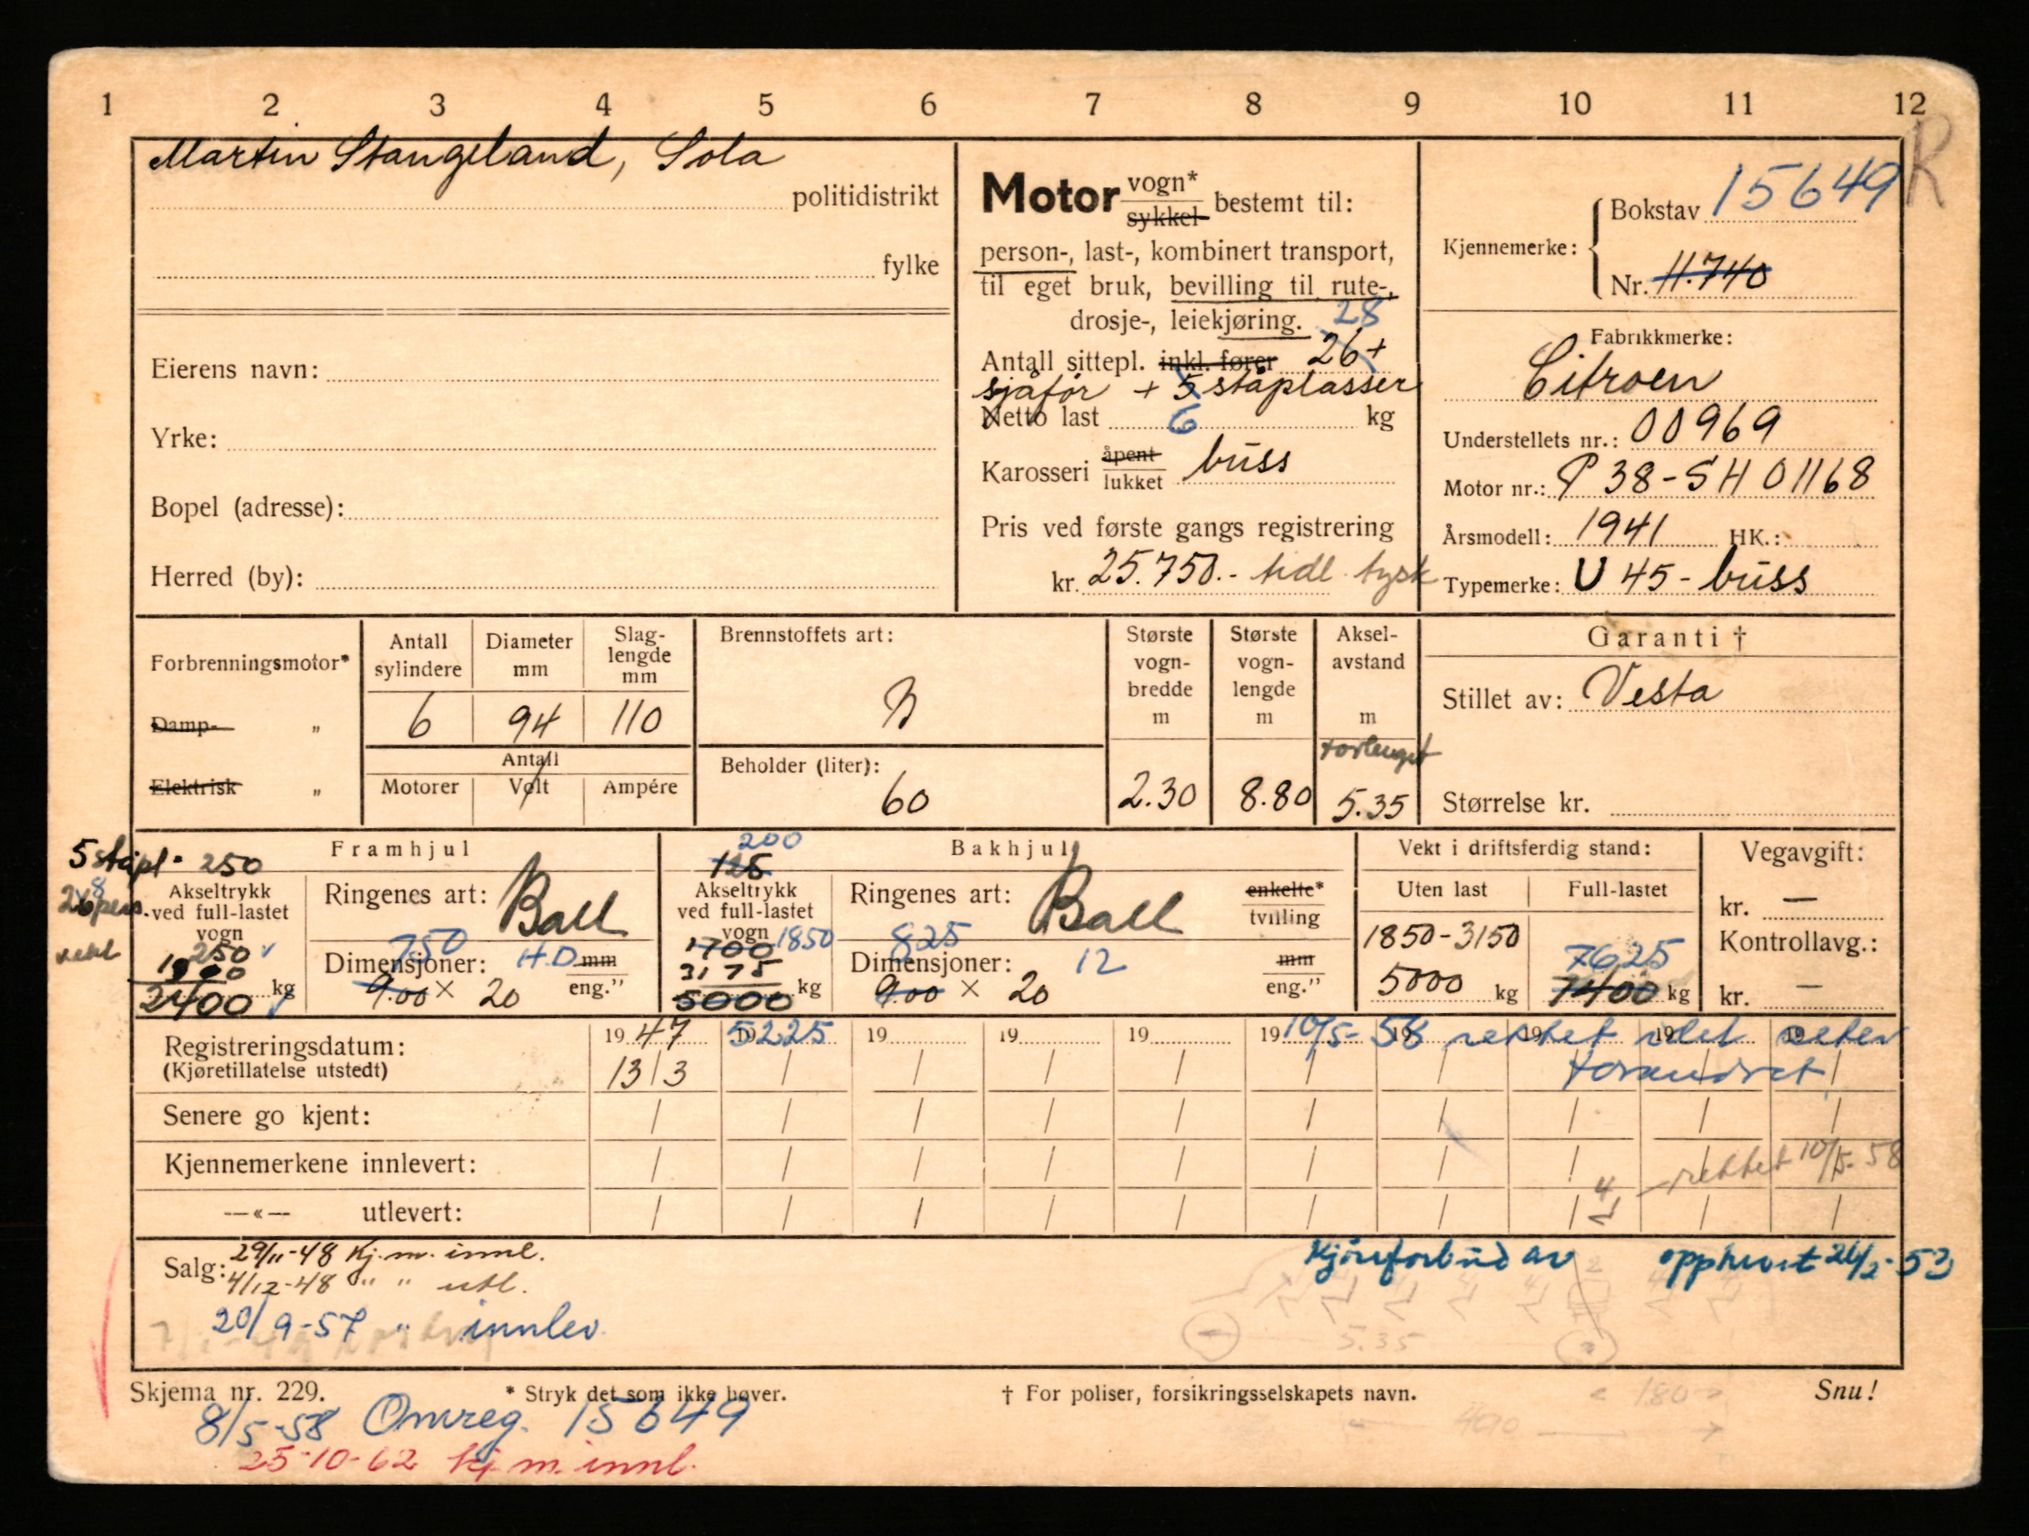 1 2 3 4 5 6 7 8 9 10 11 12
R
Martin Stangeland, Sola
politidistrikt
fylke
Eierens navn:
Yrke:
Bopel (adresse):
Herred (by):
Motor vogn* sykkel bestemt til:
person-, last-, kombinert transport,
til eget bruk, bevilling til rute-,
drosje-, leiekjøring. 28
Antall sittepl. inkl. fører 26+
sjåfør + 5 ståplasser
Netto last 6 kg
Karosseri åpent lukket buss
Pris ved første gangs registrering
kr. 25.750.- tidl. tysk
Kjennemerke:
Bokstav 15649
Nr. 11.740
Fabrikkmerke:
Citroen
Understellets nr.: 00969
Motor nr.: P 38-SH 01168
Årsmodell: 1941 HK.:
Typemerke: U 45 - buss
Forbrenningsmotor*
Damp- „
Elektrisk „
Antall sylindere
Diameter mm
Slag-lengde mm
6 94 110
Antall
Motorer Volt Ampére
Brennstoffets art:
B
Beholder (liter):
60
Største vogn-bredde m
2.30
Største vogn-lengde m
8.80
Aksel-avstand m
forlenget
5.35
Garanti †
Stillet av: Vesta
Størrelse kr.
5 ståpl. 250
Framhjul
Akseltrykk ved full-lastet vogn
250
2400 kg
Ringenes art: Ball
750 H.D
Dimensjoner: mm
9.00 × 20 eng."
200
125
Bakhjul
Akseltrykk ved full-lastet vogn
1700 1850
3175
5000 kg
Ringenes art: Ball
enkelte* tvilling
825 12
Dimensjoner: mm
9.00 × 20 eng."
Vekt i driftsferdig stand:
Uten last Full-lastet
1850-3150
5000 kg
7625
7400 kg
Vegavgift:
kr. —
Kontrollavg.:
kr. —
Registreringsdatum:
(Kjøretillatelse utstedt)
19 47 19 5225 19 19 19 19 19 19 19 19
10/5-58 rettet idet seter
forandret
13/3
Senere go kjent:
Kjennemerkene innlevert:
rettet 10/5-58
—«— utlevert:
4
Salg: 29/11-48 Kj.m. innl.
4/12-48 " " utl.
20/9-57 " innlev.
Kjøreforbud av opphevet 26/2-53
5.35
Skjema nr. 229.
* Stryk det som ikke høver.
† For poliser, forsikringsselskapets navn.
Snu!
180
400
8/5-58 Omreg. 15649
25-10-62 kj.m. innl.